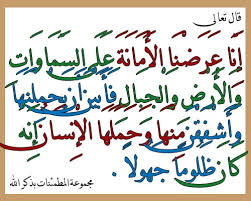 قال تعالى
إِنَّا عَرَضْنَا الْأَمَانَةَ عَلَى السَّمَاوَاتِ
وَالْأَرْضِ وَالْجِبَالِ فَأَبَيْنَ أَن يَحْمِلْنَهَا
وَأَشْفَقْنَ مِنْهَا وَحَمَلَهَا الْإِنسَانُ إِنَّهُ
كَانَ ظَلُومًا جَهُولًا .
مجموعة المطمئنات بذكر الله